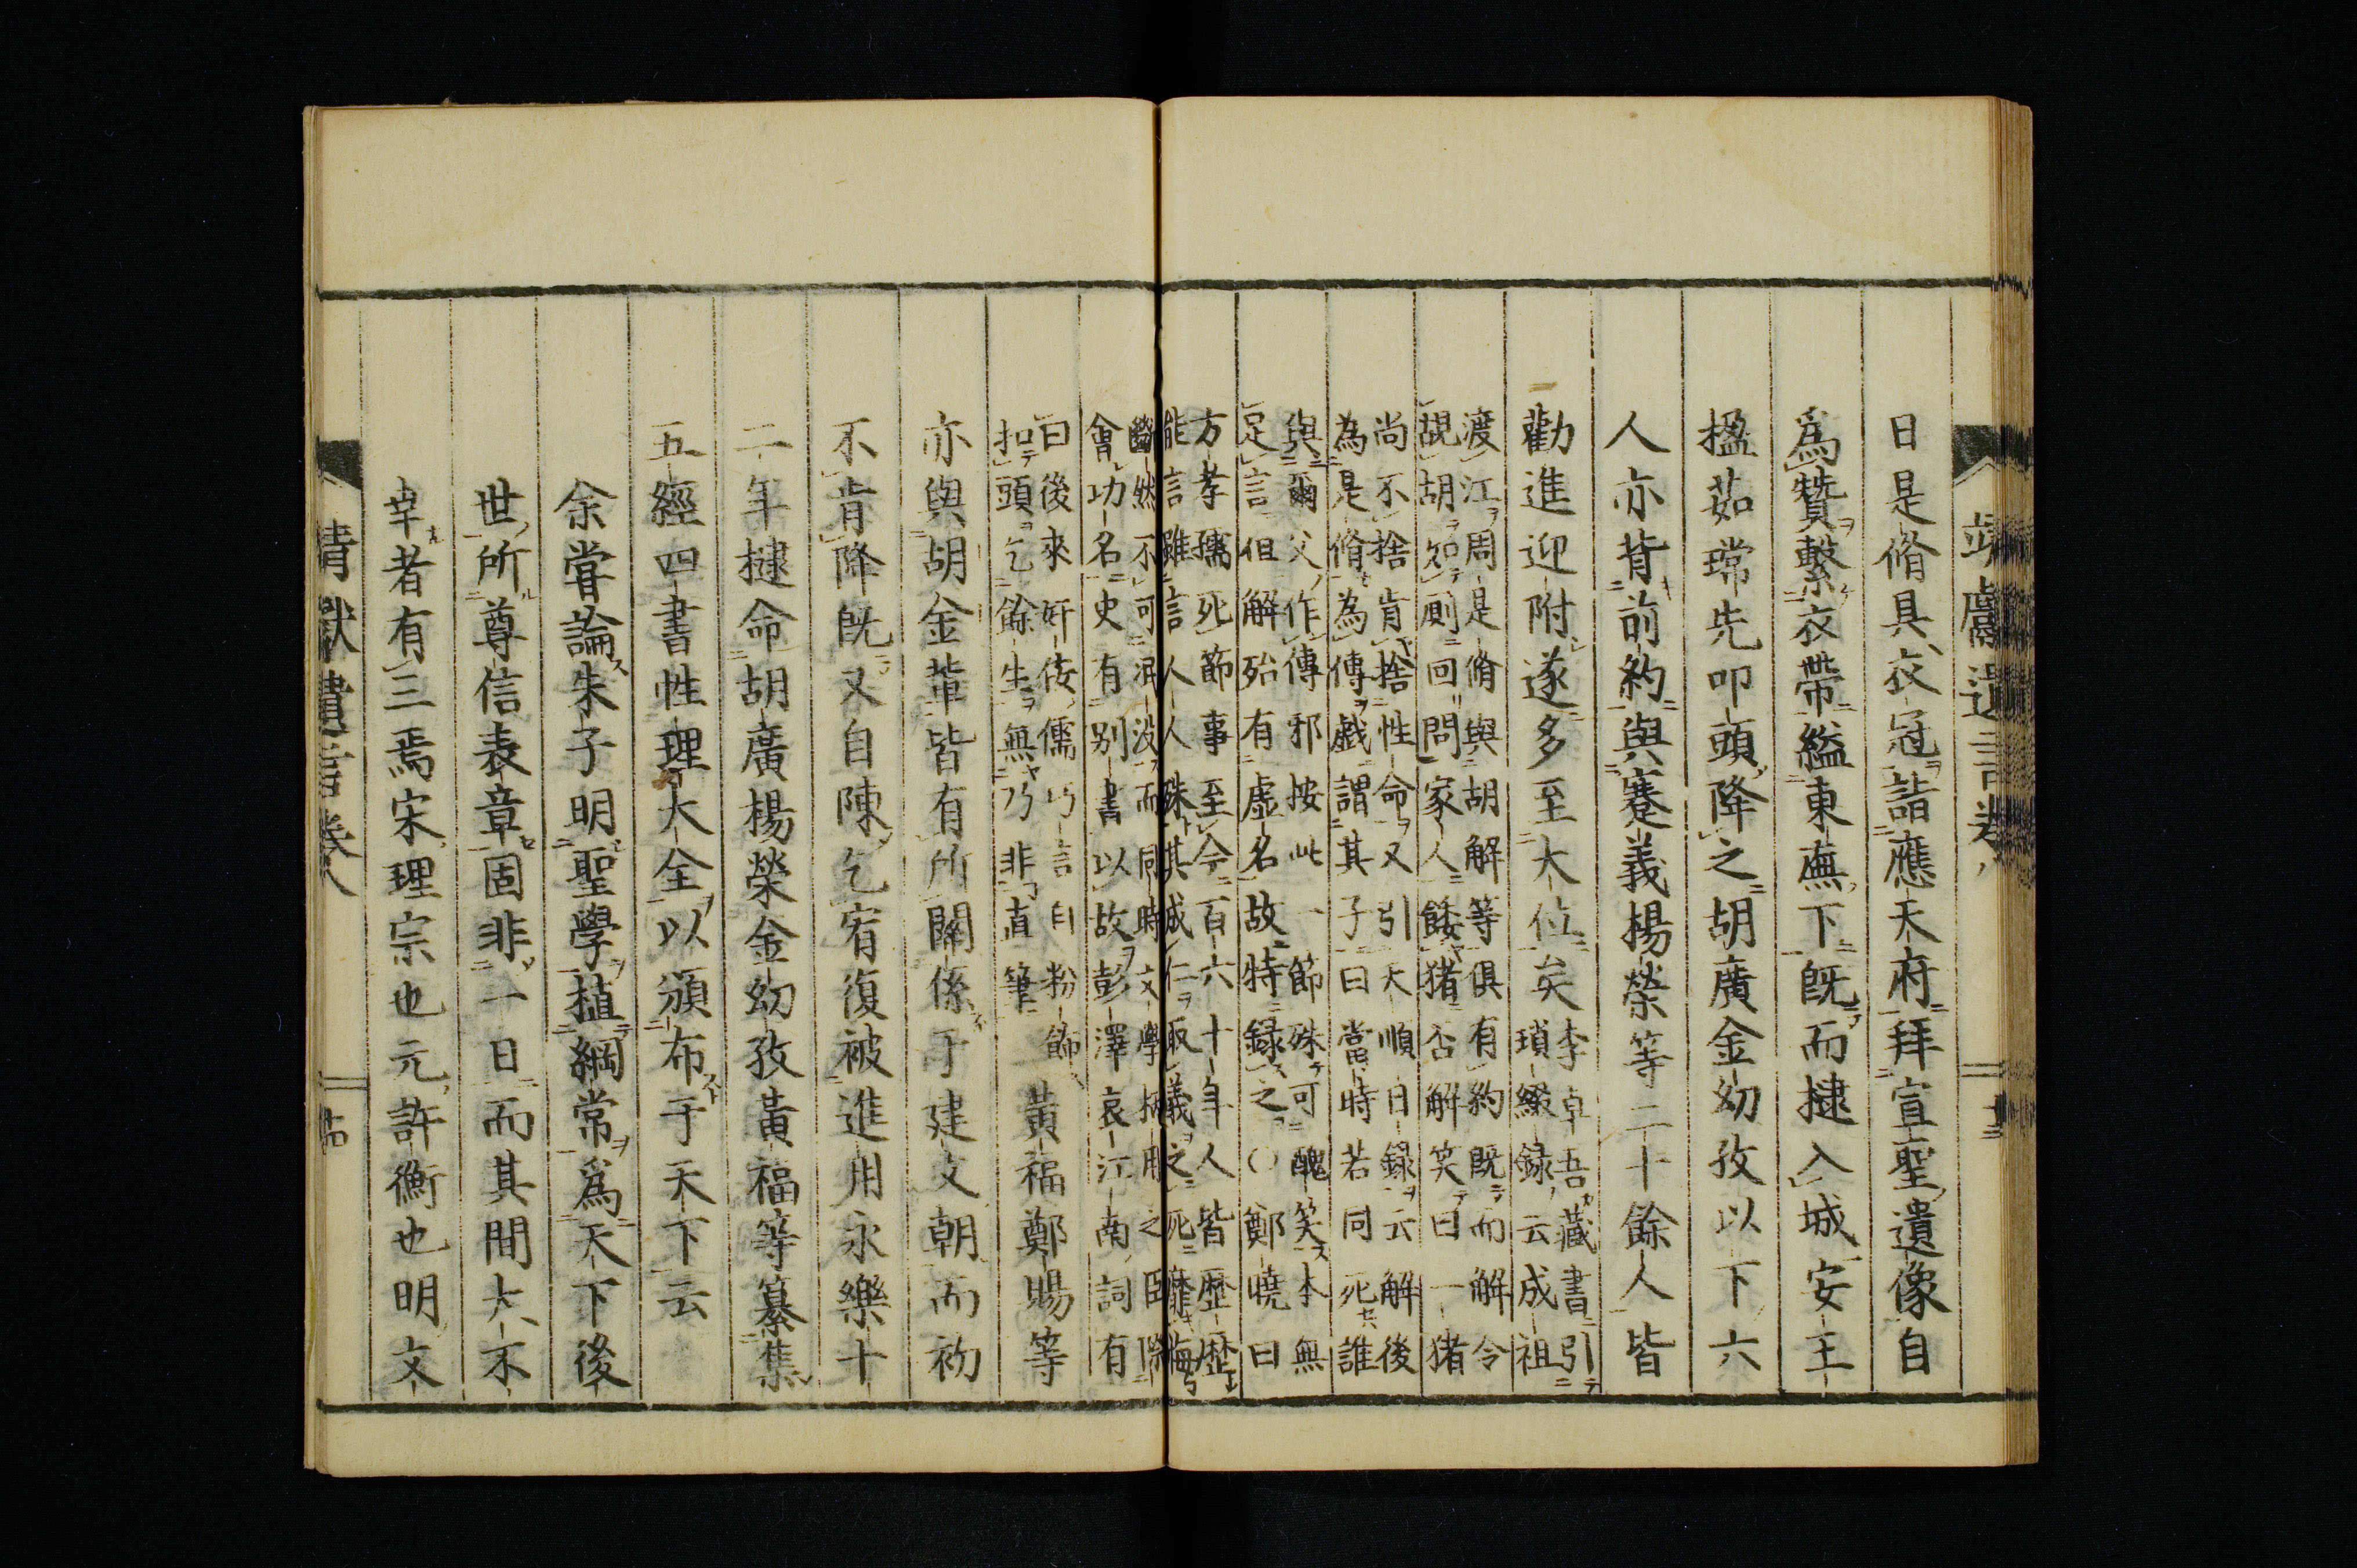 靖獻遺言卷八
日是脩具衣冠詣應天府拜宣聖遺像自
爲贊繫衣帶縊東廡下既而㨗入城安王
楹茹瑺先叩頭降之胡廣金幼孜以下六
人亦背前約與蹇義楊榮等二十餘人皆
勸進迎附遂多至大位矣
李卓吾藏書引
瑣綴録云成祖
渡江周是脩與胡解等俱有約既而解令
覘胡知厠回問家人餧猪否解笑曰一猪
尚不捨肯捨性命又引天順日録云解後
為是脩為傳戲謂其子曰當時若同死誰
與爾父作傳邪按此一節殊可醜笑本無
足言但解殆有虛名故特録之〇鄭曉曰
方孝孺死節事至今百六十年人皆歷歷
能言雖言人人殊其成仁取義之死靡悔
斷然不可泯没而同時文學柄用之臣際
會功名史有别書以故彭澤哀江南詞有
曰後來奸佞儒巧言自粉飾
扣頭乞餘生無乃非直筆
黃福鄭賜等
亦與胡金輩皆有所關係于建文朝而初
不肯降既又自陳乞宥復被進用永樂十
二年㨗命胡廣楊榮金幼孜黃福等纂集
五經四書性理大全以頒布于天下云
余嘗論朱子明聖學植綱常爲天下後
世所尊信表章固非一日而其間大不
幸者有三焉宋理宗也元許衡也明文
靖獻遺言卷八
十四